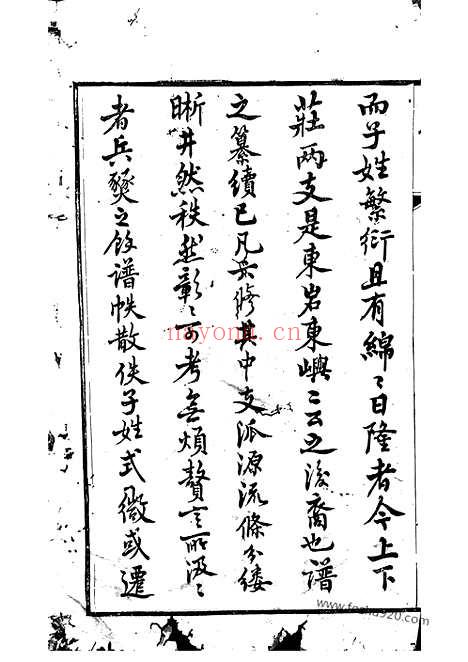 而子姓繁衍且有綿〻日隆者今上下
莊兩支是東岩東嶼二公之後裔也譜
之纂續已凡六修其中支派源流條分縷
晰井然秩然彰〻可考無煩贅言所汲〻
者兵燹之餘譜帙散佚子姓式微或遷
nayona.cn
www.fosha920.com